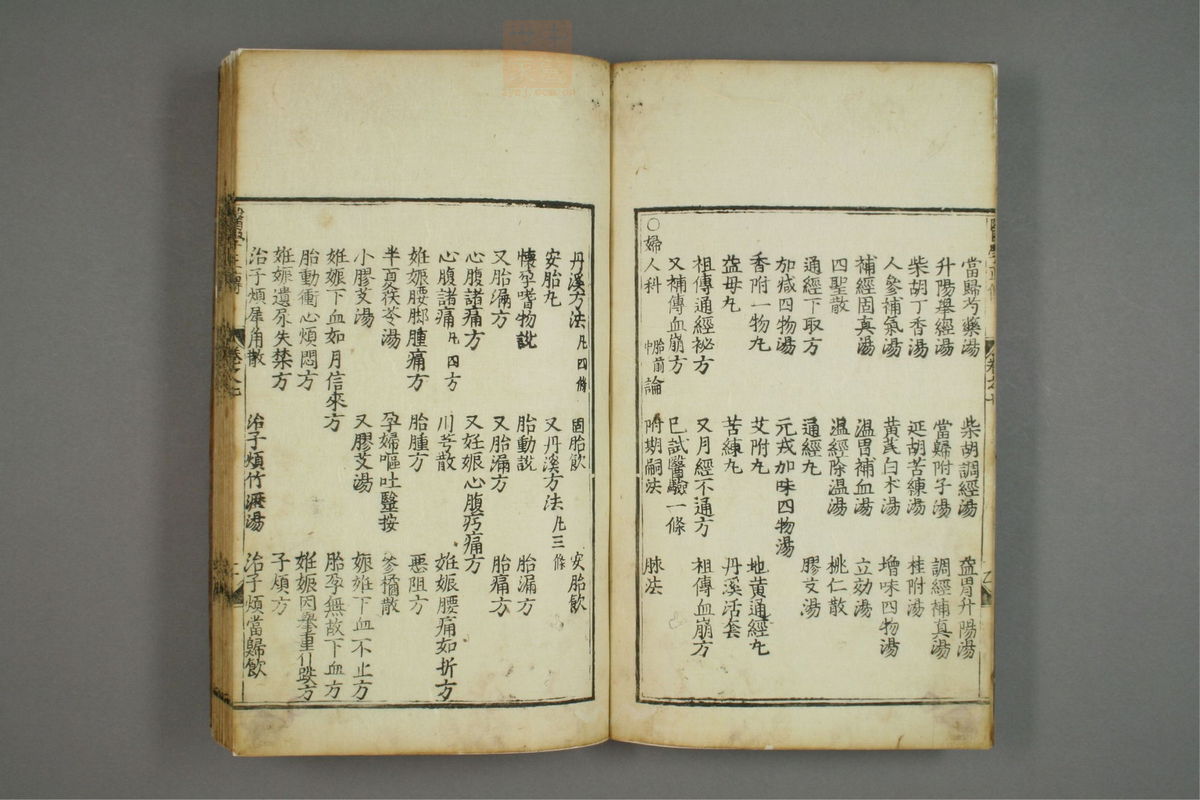 當歸芍藥湯 柴胡調經湯 益胃升陽湯
升陽舉經湯 當歸附子湯 調經補真湯
柴胡丁香湯 延胡苦練湯 桂附湯
人參補氣湯 黃芪白术湯 增味四物湯
補經固真湯 温胃補血湯 立効湯
四聖散 温經除温湯 桃仁散
通經下取方 通經丸 膠艾湯
加减四物湯 元戎加味四物湯
香附一物丸 艾附丸 地黄通經丸
益母丸 苦練丸 丹溪活套
祖傳通經祕方 又月經不通方 祖傳血崩方
又補傳血崩方 已試醫驗一條
○婦人科 胎前論 附期嗣法 脉法
丹溪方法 凡四條 固胎飲 安胎飲
安胎丸 又丹溪方法 凡三條
懷孕嗜物說 胎動說 胎漏方
又胎漏方 又胎漏方 胎痛方
心腹諸痛方 又妊娠心腹㽲痛方
心腹諸痛 凡四方 川芎散 姙娠腰痛如折方
姙娠腰脚腫痛方 胎腫方 惡阻方
半夏茯苓湯 孕婦嘔吐醫按 參橘散
小膠艾湯 又膠艾湯 娠姙下血不止方
姙娠下血如月信來方 胎孕無故下血方
胎動衝心煩悶方 姙娠因舉重仆跌方
姙娠遺尿失禁方 子煩方
治子煩犀角散 治子煩竹瀝湯 治子煩當歸飲